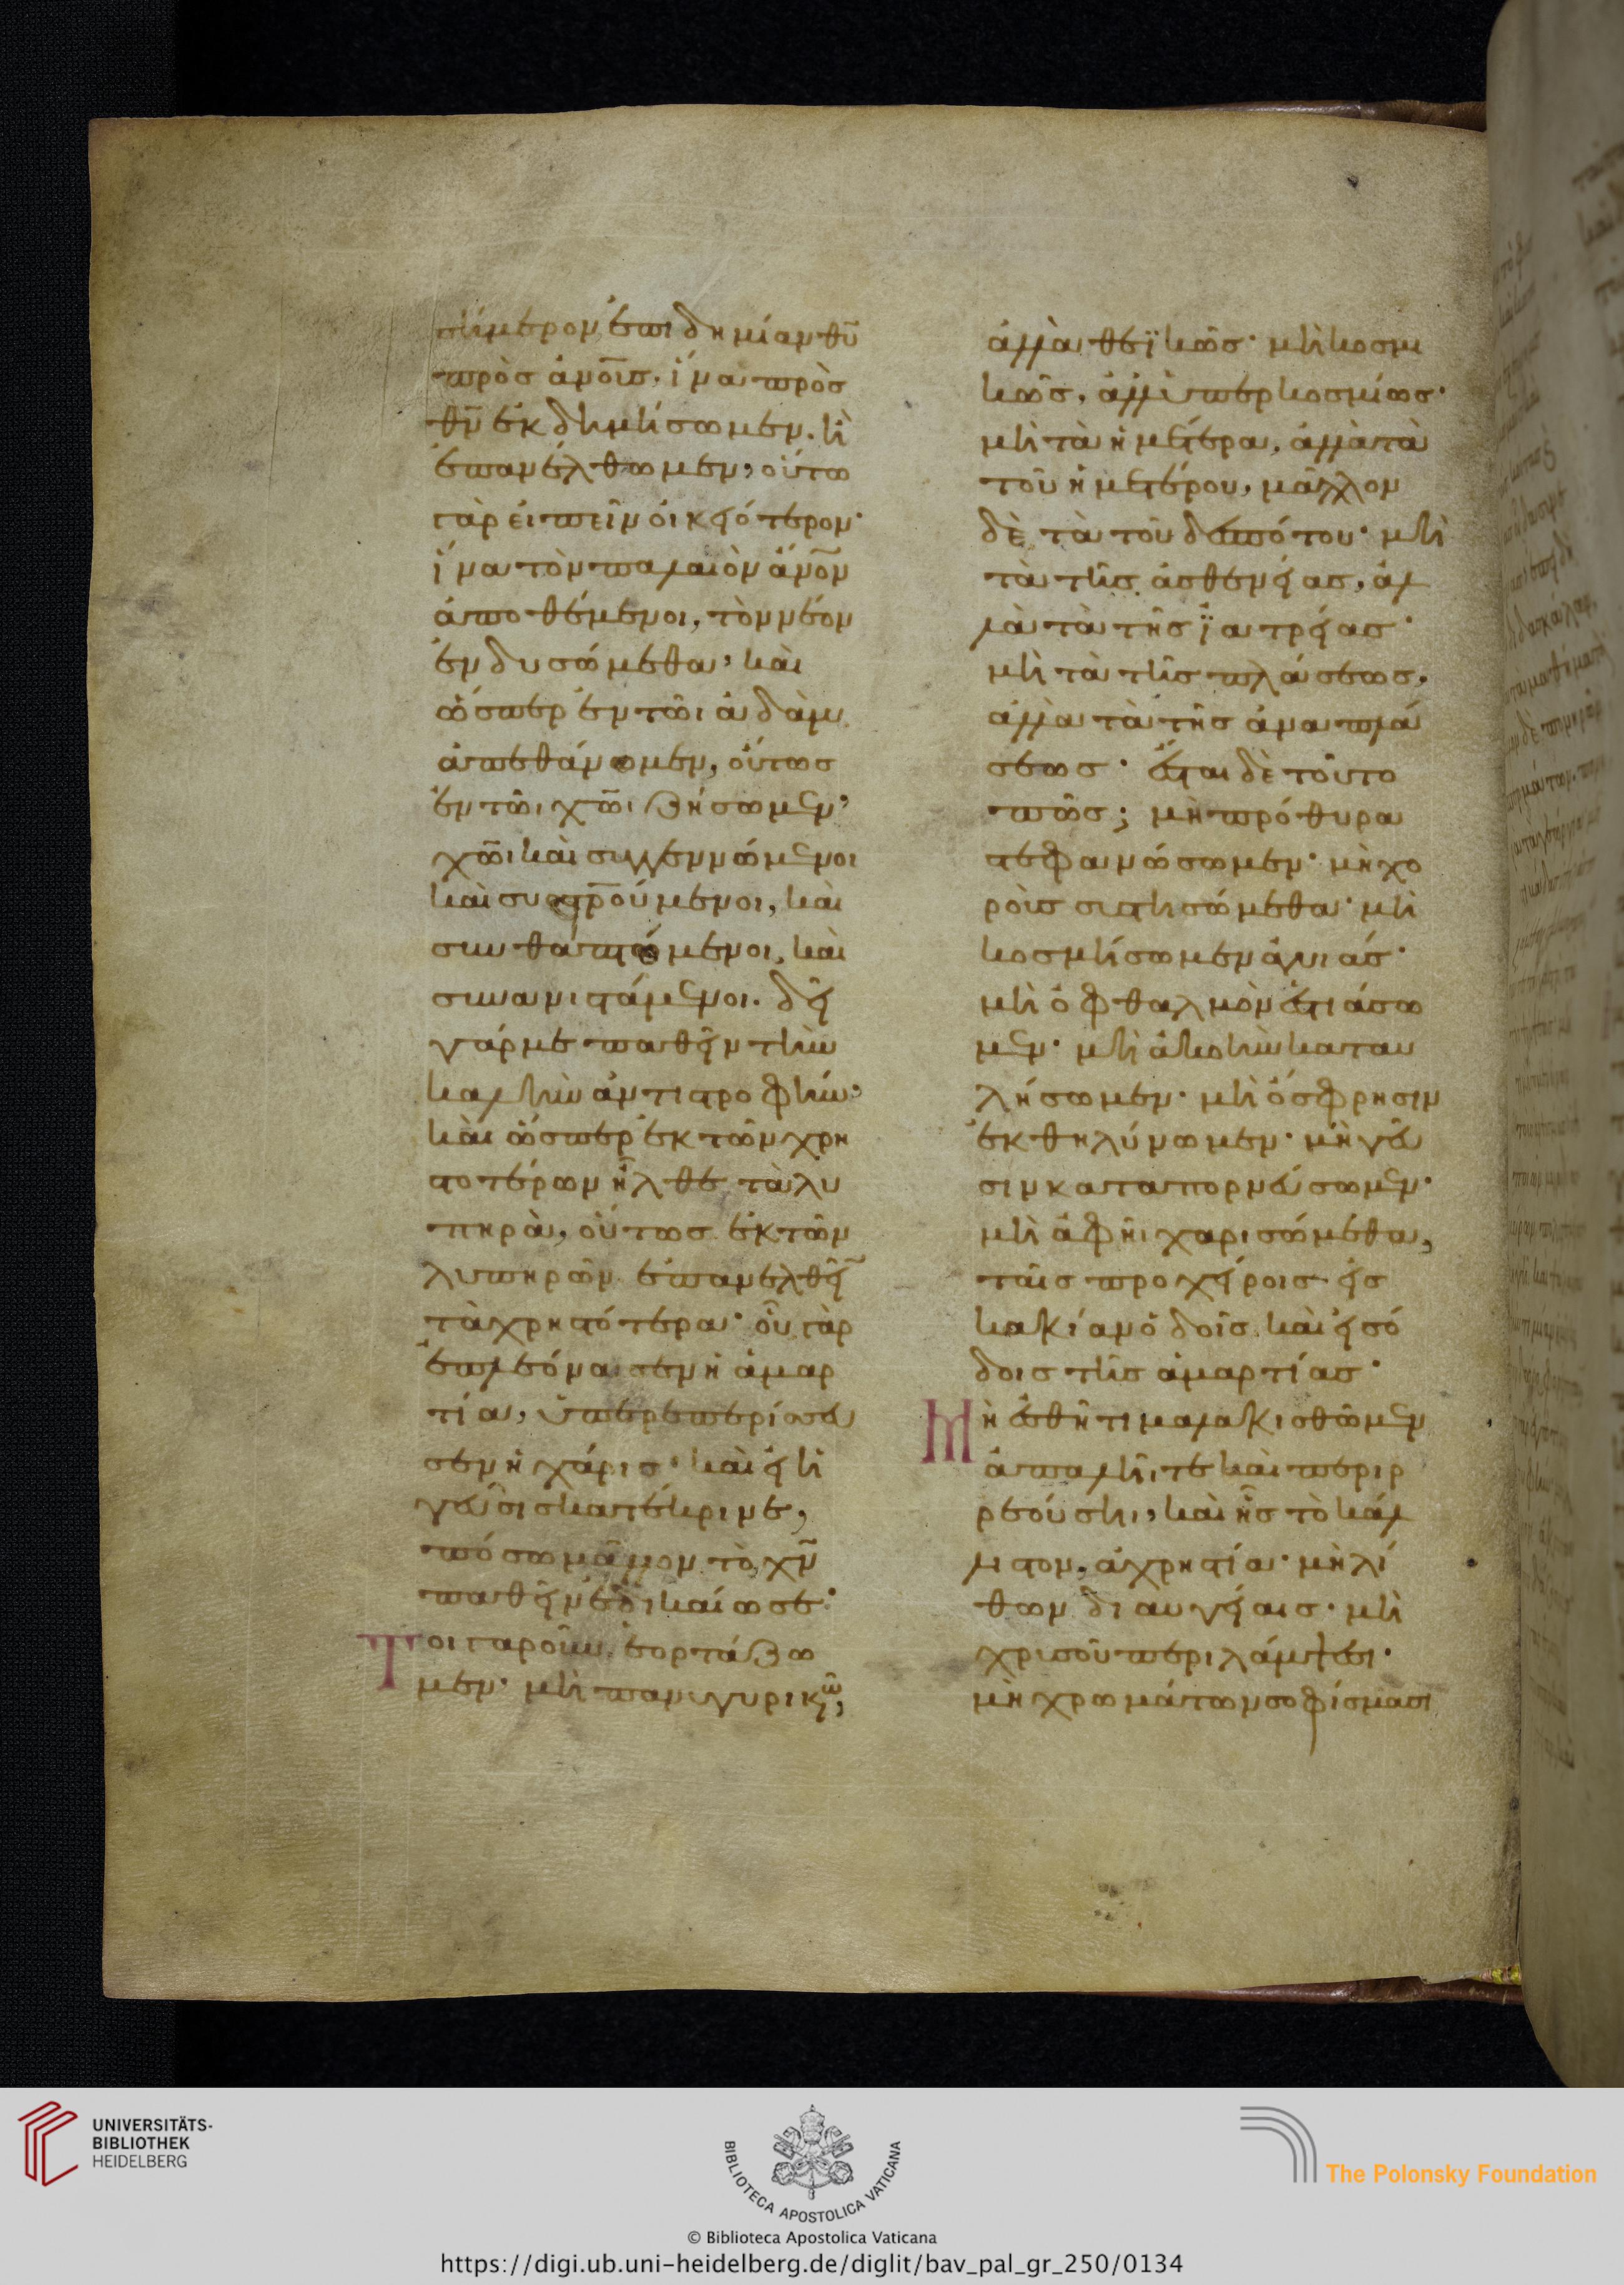 σήμερον ἐπιδημίαν θ̅υ̅
πρὸς ἀν̅ο̅ι̅ς, ἵνα πρὸς
θ̅ν̅ ἐκδημήσωμεν. ἢ
ἐπανέλθωμεν, οὕτω
γὰρ εἰπεῖν οἰκειότερον·
ἵνα τὸν παλαιὸν ἄν̅ο̅ν̅
ἀποθέμενοι, τὸν νέον
ἐνδυσώμεθα, καὶ
ὥσπερ ἐν τῶι ἀδὰμ
ἀπεθάνομεν, οὕτως
ἐν τῶι χ̅ω̅ι ζήσωμεν,
χ̅ω̅ι καὶ συγγεννώμενοι
καὶ συστ̅ρ̅ούμενοι, καὶ
συνθαπτόμενοι, καὶ
συνανιστάμενοι. δεῖ
γάρ με παθεῖν τὴν
καλὴν ἀντιστροφήν,
καὶ ὥσπερ ἐκ τῶν χρη
στοτέρων ἦλθε τὰ λυ
πηρὰ, οὕτως ἐκ τῶν
λυπηρῶν ἐπανελθεῖ̅
τὰ χρηστότερα· οὗ γὰρ
ἐπλεόνασεν ἡ ἁμαρ
τία, ὑπερεπερίσσευ
σεν ἡ χάρις· καὶ εἰ ἡ
γεῦσις κατέκρινε,
πόσω μᾶλλον τὸ χ̅ν̅
παθεῖν ἐδικαίωσε·
Τοιγαροῦν ἑορτάζω
μεν· μὴ πανηγυρικῶ,
ἀλλὰ θεϊκῶς· μὴ κοσμι
κῶς, ἀλλ' ὑπερκοσμίως·
μὴ τὰ ἡμέτερα, ἀλλὰ τὰ
τοῦ ἡμετέρου, μᾶλλον
δὲ τὰ τοῦ δεσπότου· μὴ
τὰ τῆς ἀσθενείας, ἀλ
λὰ τὰ τῆς ἰατρείας·
μὴ τὰ τῆς πλάσεως,
ἀλλὰ τὰ τῆς ἀναπλά
σεως· ἔσται δὲ τοῦτο
πῶς; μὴ πρόθυρα
στεφανώσωμεν· μὴ χο
ροὺς συστησώμεθα· μὴ
κοσμήσωμεν ἀγυιάς·
μὴ ὀφθαλμὸν ἑστιάσω
μεν· μὴ ἀκοὴν καταυ
λήσωμεν· μὴ ὄσφρησιν
ἐκθηλύνωμεν· μὴ γεῦ
σιν καταπορνεύσωμεν·
μὴ ἁφῆι χαρισώμεθα,
ταῖς προχείροις εἰς
κακίαν ὁδοῖς καὶ εἰσό
δοις τῆς ἁμαρτίας·
Μὴ ἐσθῆτι μαλακισθῶμεν
ἁπαλῆι τε καὶ περιρ
ρεούσηι, καὶ ἧς τὸ κάλ
λιστον, ἀχρηστία· μὴ λί
θων διαυγείαις· μὴ
χρυσοῦ περιλάμψεσι·
μὴ χρωμάτων σοφίσμασι
UNIVERSITÄTS-
BIBLIOTHEK
HEIDELBERG
BIBLIOTECA APOSTOLICA VATICANA
The Polonsky Foundation
© Biblioteca Apostolica Vaticana
https://digi.ub.uni-heidelberg.de/diglit/bav_pal_gr_250/0134